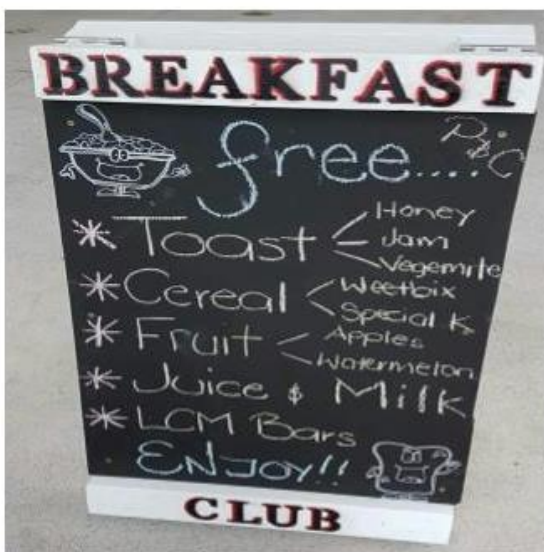 BREAKFAST
free.... P&C
* Toast < Honey
- Jam
Vegemite
* Cereal < Weetbix
Special K
* Fruit < Apples
Watermelon
* Juice & Milk
* LCM Bars
ENJOY!!
CLUB